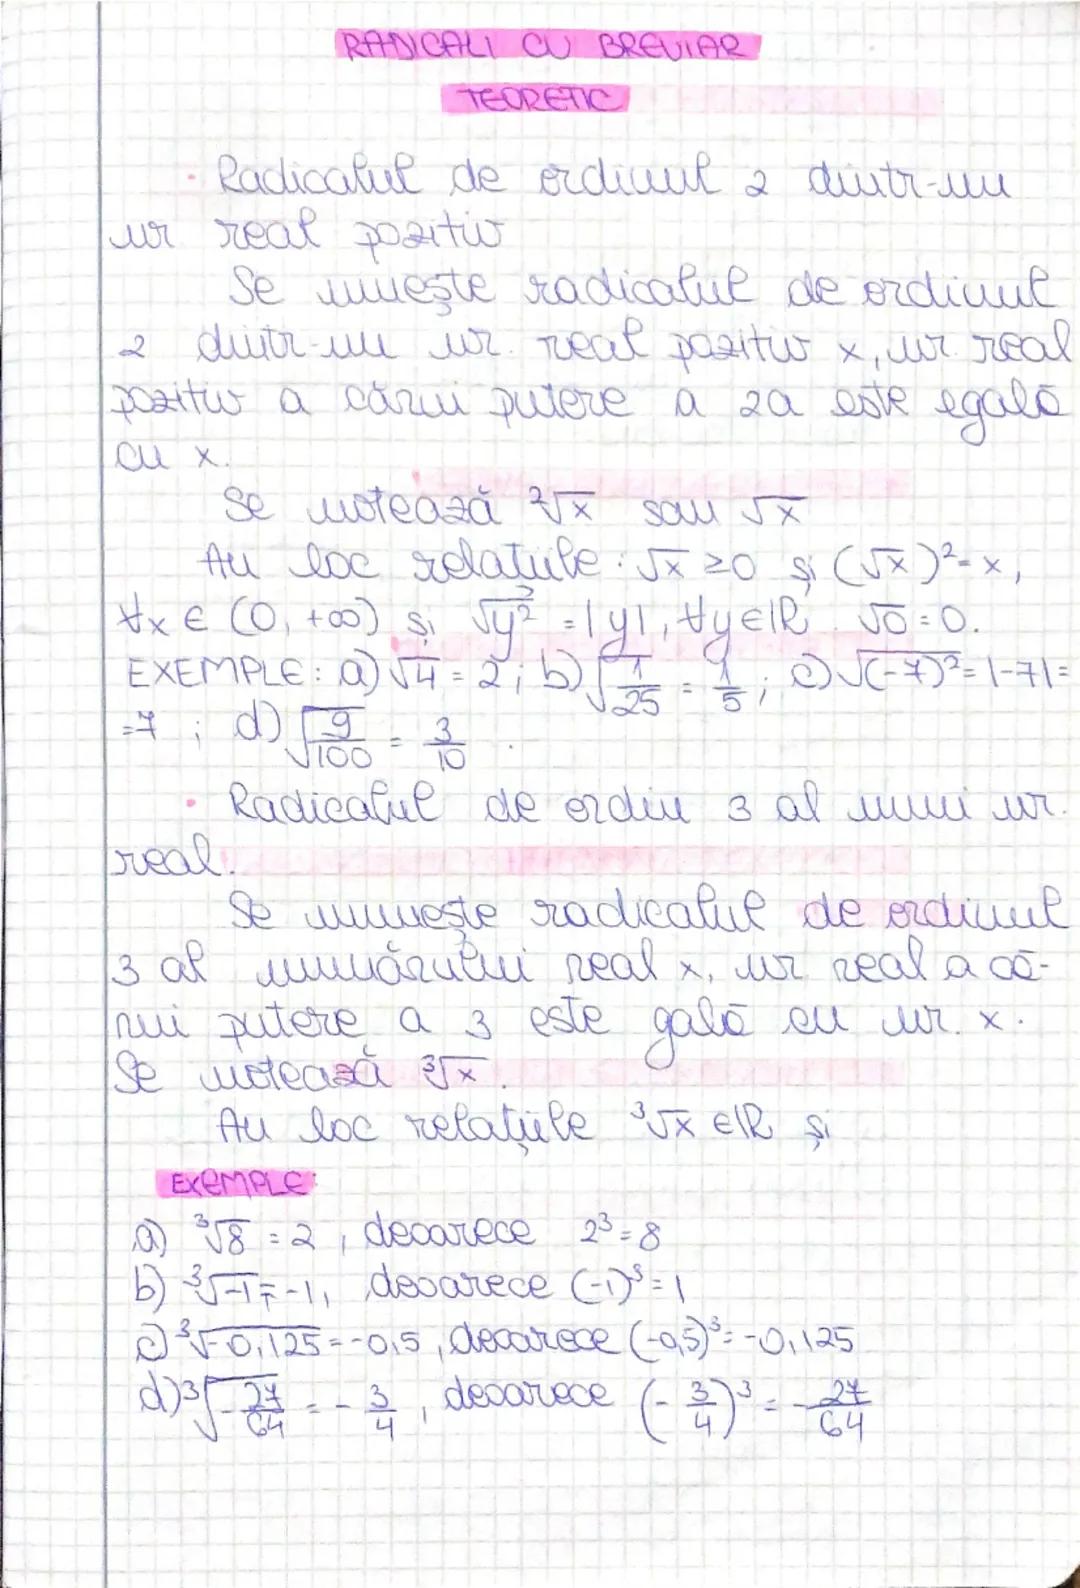 RADICALI CU BREVIAR
TEORETIC
· Radicalul de ordinul 2 dintr-un
nr real pozitiv
Se numește radicalul de ordinul
2 dintr-un nr. real pozitiv x, nr. real
pozitiv a cărui putere a 2a este egală
cu x.
Se notează ²√x sau √x
Au loc relațiile: √x ≥0 și (√x)²=x,
∀x ∈ (0, +∞) și √y² = |y|, ∀y∈ℝ. √0=0.
EXEMPLE: a) √4 = 2; b) √(1/25) = 1/5; c) √(-7)² = |-7|=
=7 ; d) √(9/100) = 3/10.
· Radicalul de ordin 3 al unui nr.
real.
Se numește radicalul de ordinul
3 al numărului real x, nr real a că-
rui putere a 3 este gală cu nr. x.
Se notează ³√x.
Au loc relațiile ³√x ∈ℝ și
EXEMPLE:
a) ³√8 = 2, deoarece 2³=8
b) ³√-1 = -1, deoarece (-1)³=1
c) ³√-0,125 = -0,5, deoarece (-0,5)³= -0,125
d) ³√-27/64 = - 3/4, deoarece (- 3/4)³ = - 27/64